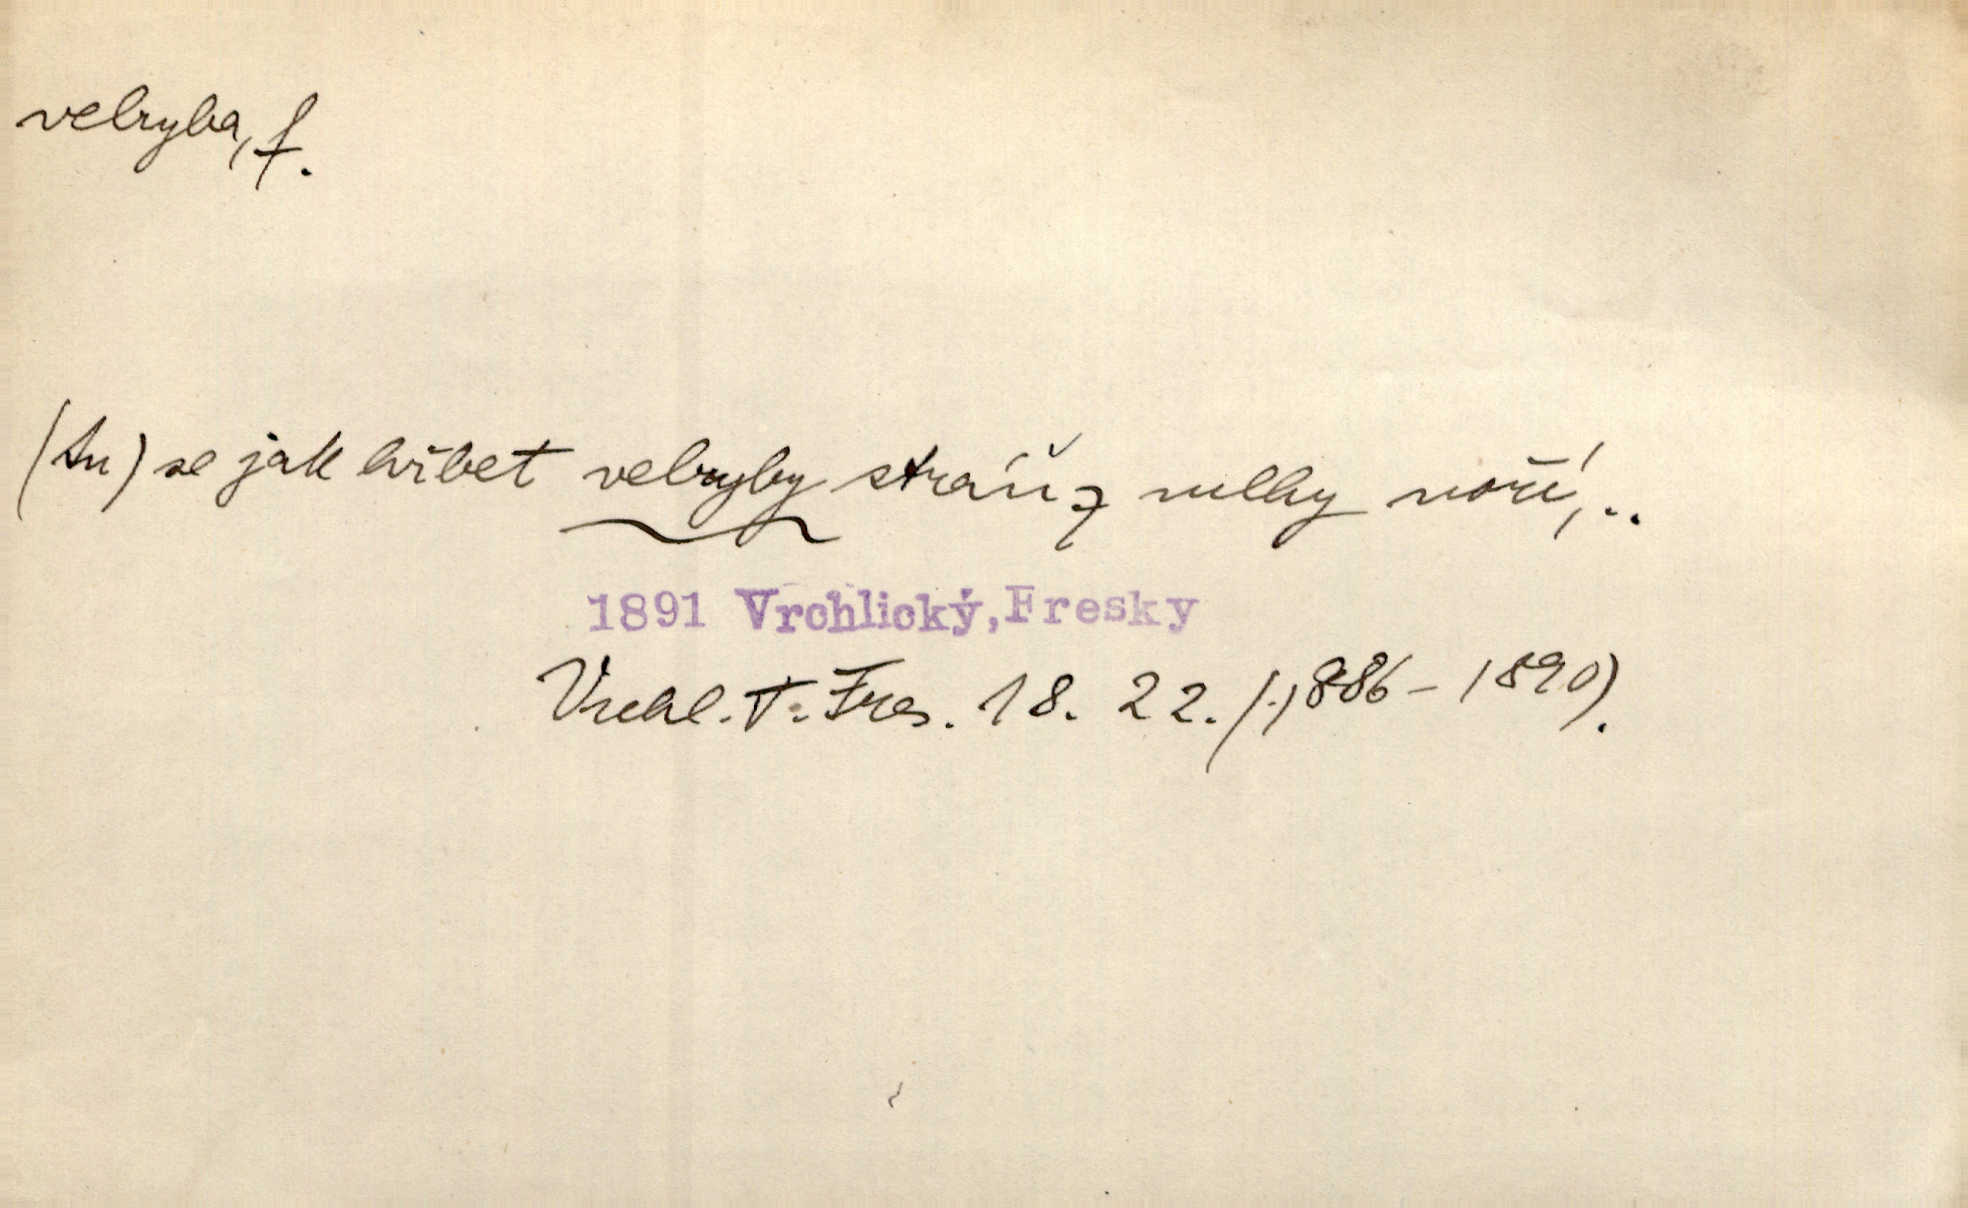 velryba, f.
(tu) se jak hřbet velryby stráň z mlhy noří,..
1891 Vrchlický,Fresky
Vrchl. T. Fres. 18. 22. (.1886 – 1890).